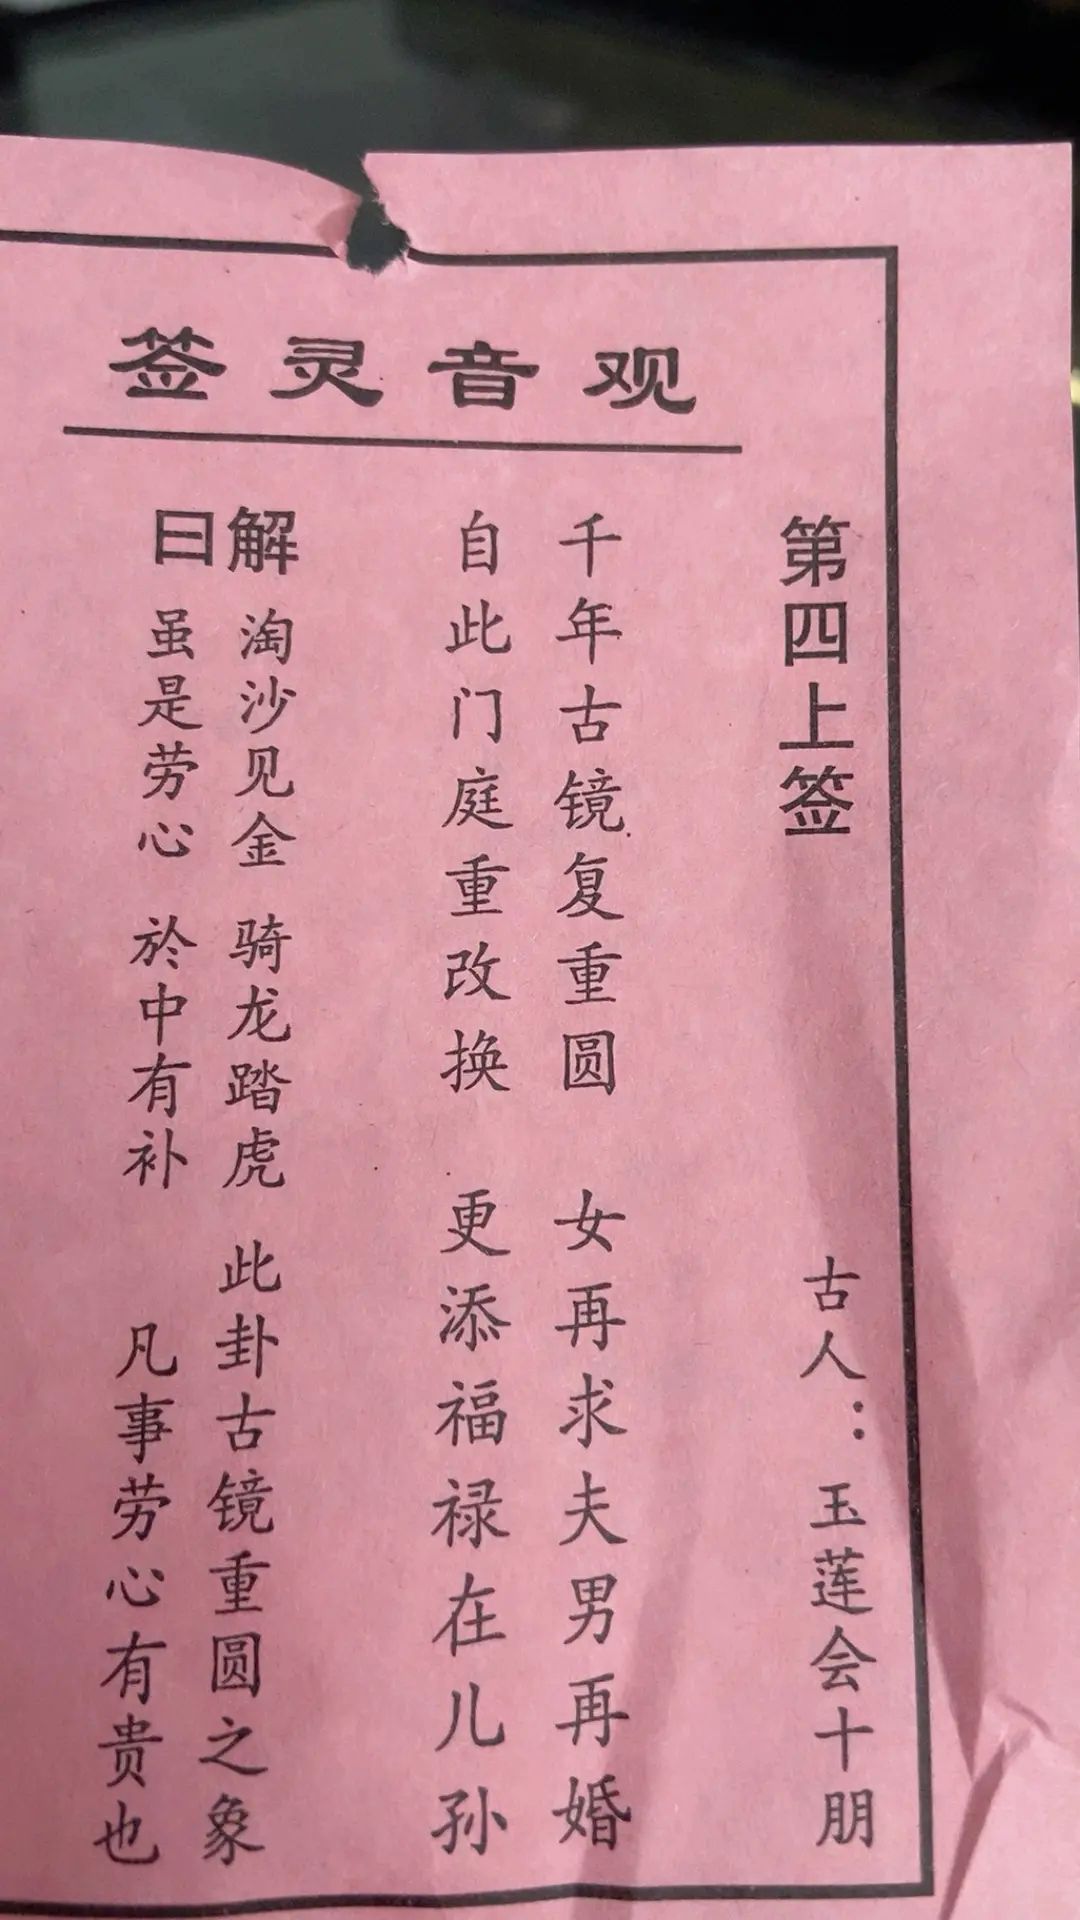 观音灵签
第四上签
古人：玉莲会十朋
千年古镜复重圆 女再求夫男再婚
自此门庭重改换 更添福禄在儿孙
解曰
淘沙见金 骑龙踏虎 此卦古镜重圆之象
虽是劳心 於中有补 凡事劳心有贵也